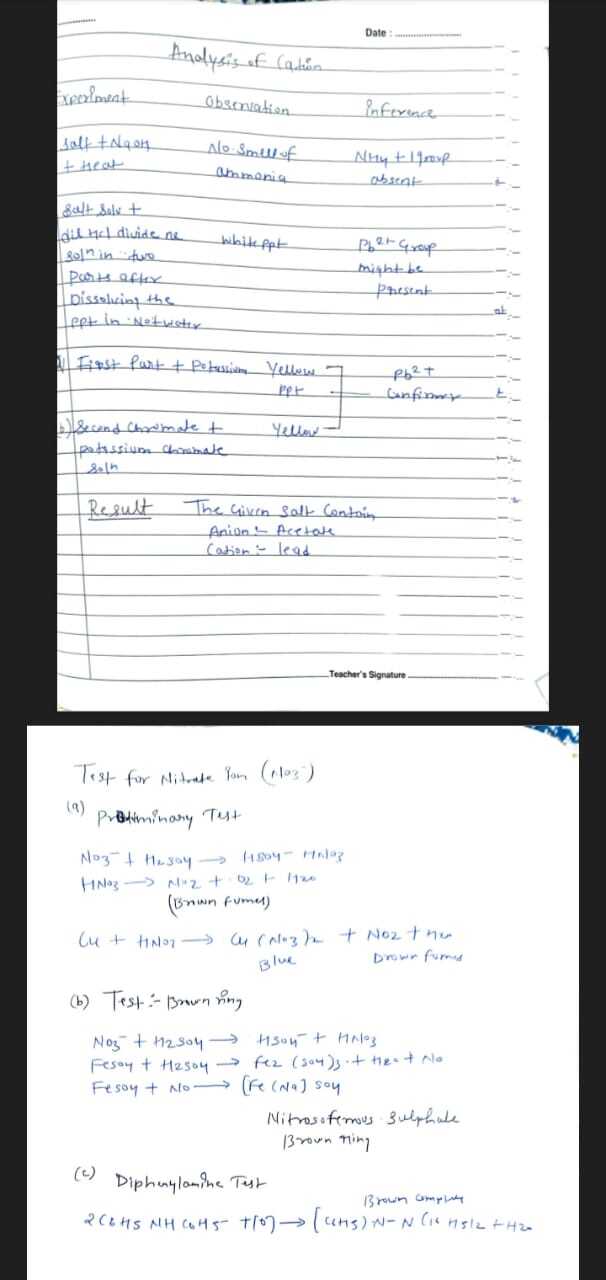 Date :
Analysis of Cation
Experiment Observation Inference
Salt + NaOH No Smell of NH4 + 1 group
+ Heat ammonia absent
Salt Soln +
dil Hcl divide ne white ppt Pb2+ Group
soln in two might be
Parts after Present
Dissolving the
ppt in Notwater
First Part + Potassium Yellow Pb2+
ppt Confirmer
b) Second Chromate + Yellow
potassium chromate
Soln
Result The Given Salt Contain
Anion :- Acetate
Cation :- lead
Teacher's Signature
Test for Nitrate Ion (No3-)
(a) Preliminary Test
No3- + H2SO4 → HSO4- HNO3
HNO3 → NO2 + O2 + H20
(Brown fumes)
Cu + HNO3 → Cu (NO3)2 + NO2 + H20
Blue Brown fumes
(b) Test :- Brown ring
NO3- + H2SO4 → HSO4- + HNO3
FeSO4 + H2SO4 → Fe2 (SO4)3 + H20 + No
FeSO4 + No → [Fe (No] SO4
Nitrosoferrous Sulphate
Brown ring
(c) Diphenylamine Test
Brown Complex
2 C6H5 NH C6H5 + [O] → [C6H5) N-N (C6 H5)2 + H20